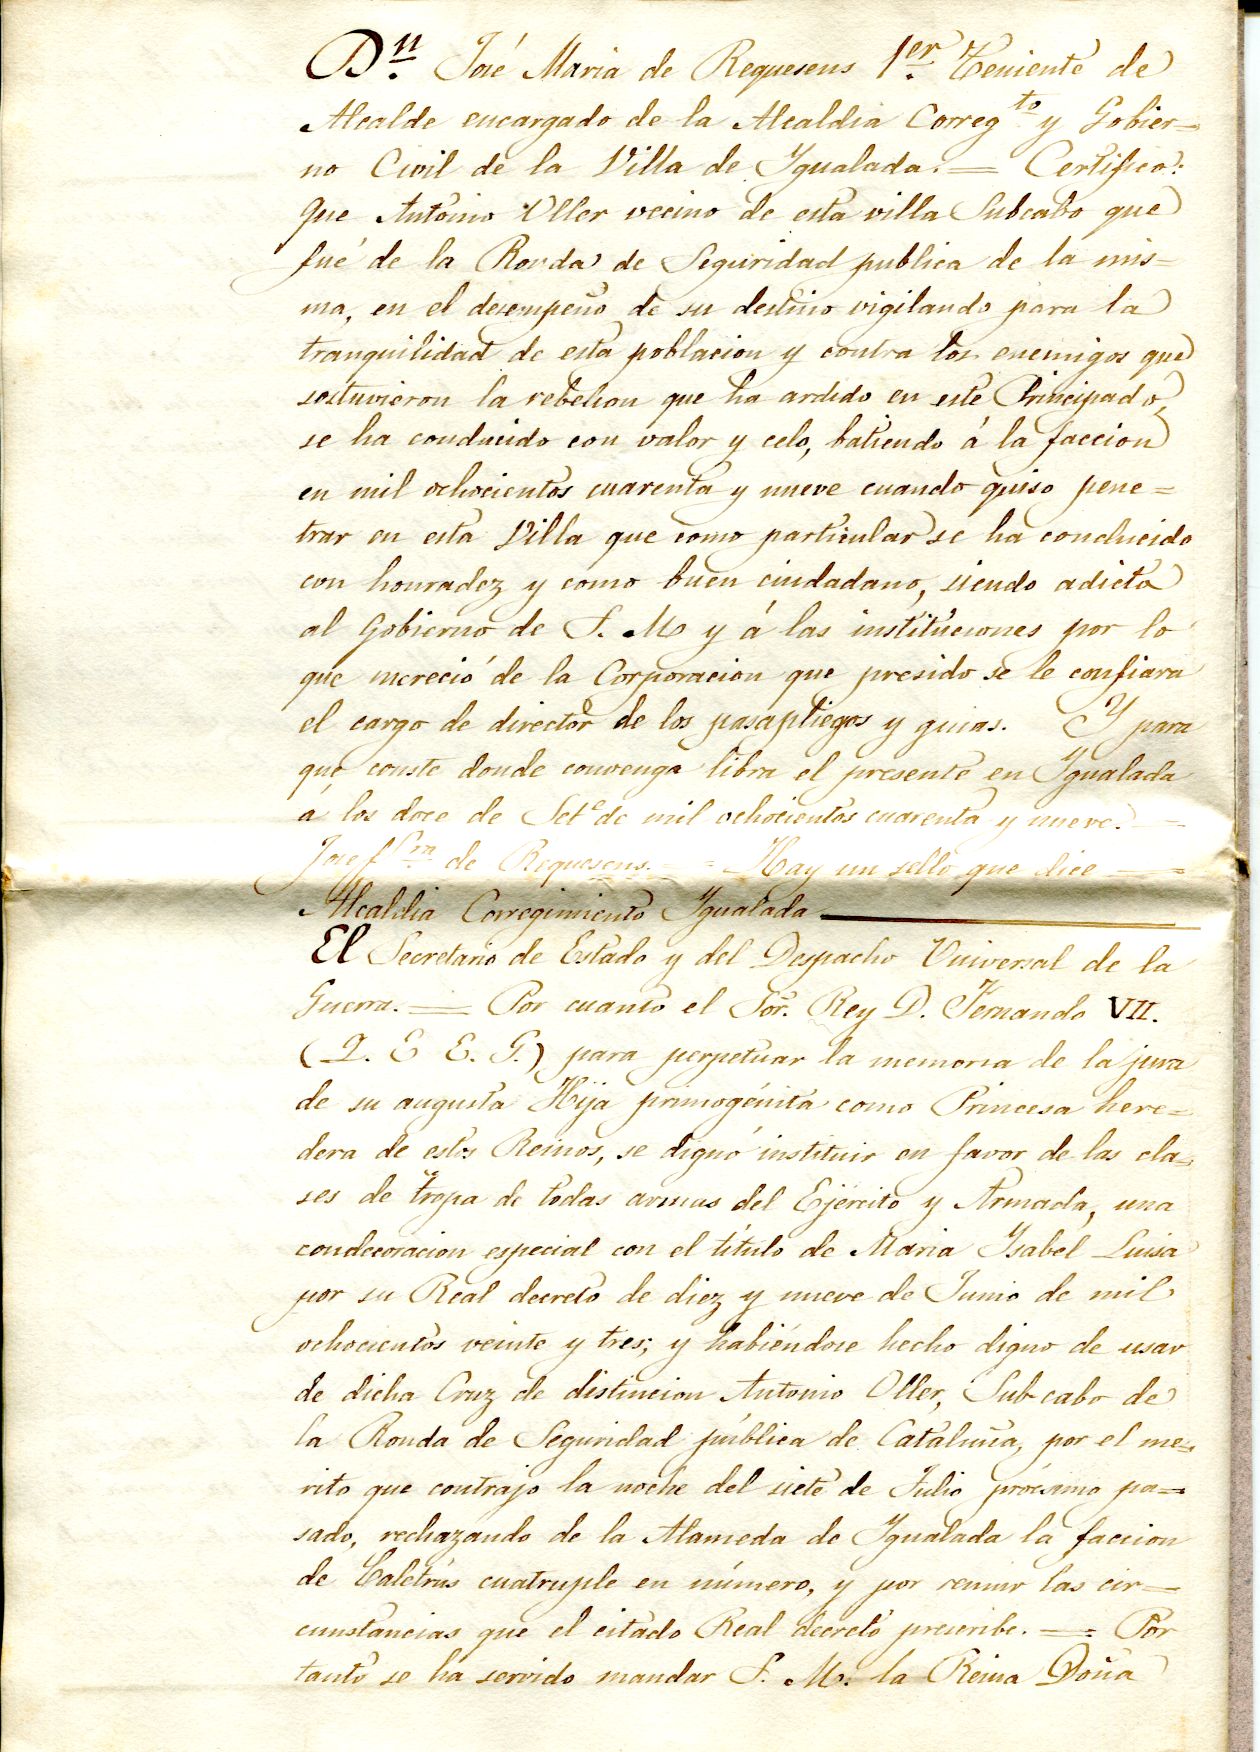 Dn. José Maria de Requesens 1er. Teniente de
Alcalde encargado de la Alcaldia Corregto. y Gobier=
no Civil de la Villa de Ygualada. = Certifico:
Que Antonio Oller vecino de esta villa Subcabo que
fué de la Ronda de Seguridad publica de la mis=
ma, en el desempeño de su destino vigilando para la
tranquilidad de esta poblacion y contra los enemigos que
sostuvieron la rebelion que ha ardido en este Principado,
se ha conducido con valor y celo, batiendo á la faccion
en mil ochocientos cuarenta y nueve cuando quiso pene=
trar en esta Villa que como particular se ha conducido
con honradez y como buen ciudadano, siendo adicto
al Gobierno de S. M y á las instituciones por lo
que mereció de la Corporacion que presido se le confiara
el cargo de director de los pasapliegos y guias. Y para
que conste donde convenga libra el presente en Ygualada
á los doce de Sete de mil ochocientos cuarenta y nueve. =
de Requesens. = Hay un sello que dice =
Alcaldia Corregimiento Ygualada
El Secretario de Estado y del Despacho Universal de la
Guerra. = Por cuanto el Sor. Rey D. Fernando VII.
(Q. E E. G.) para perpetuar la memoria de la jura
de su augusta Hija primogénita como Princesa here=
dera de estos Reinos, se dignó instituir en favor de las cla=
ses de tropa de todas armas del Ejército y Armada, una
condecoracion especial con el título de Maria Ysabel Luisa
por su Real decreto de diez y nueve de Junio de mil
ochocientos veinte y tres; y habiéndose hecho digno de usar
de dicha Cruz de distincion Antonio Oller, Sub-cabo de
la Ronda de Seguridad pública de Cataluña, por el me=
rito que contrajo la noche del siete de Julio prócsimo pa=
sado, rechazando de la Alameda de Ygualada la faccion
de Caletrús cuatruple en número, y por reunir las cir=
cunstancias que el citado Real decreto prescribe. = Por
tanto se ha servido mandar S. M. la Reina Doña